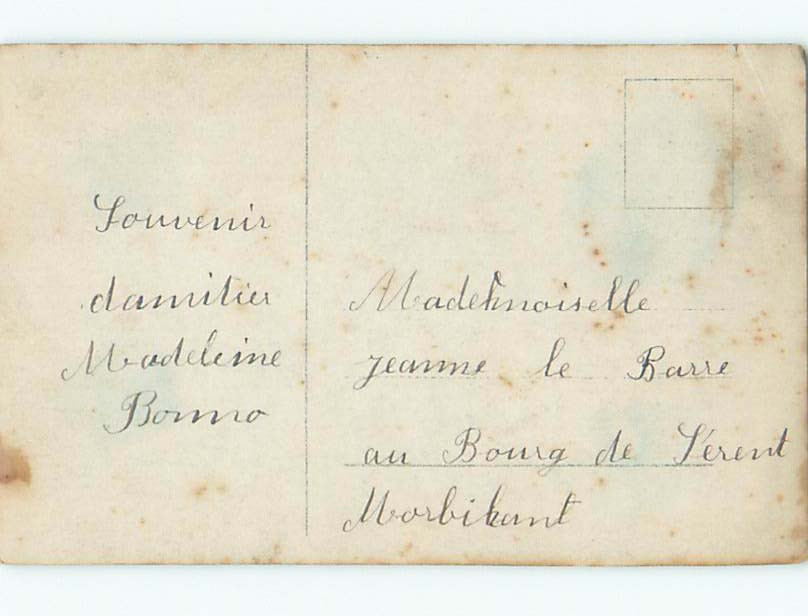 Souvenir
damitier
Madeleine
Bonno
Mademoiselle
jeanne le Barre
au Bourg de Sérent
Morbihant